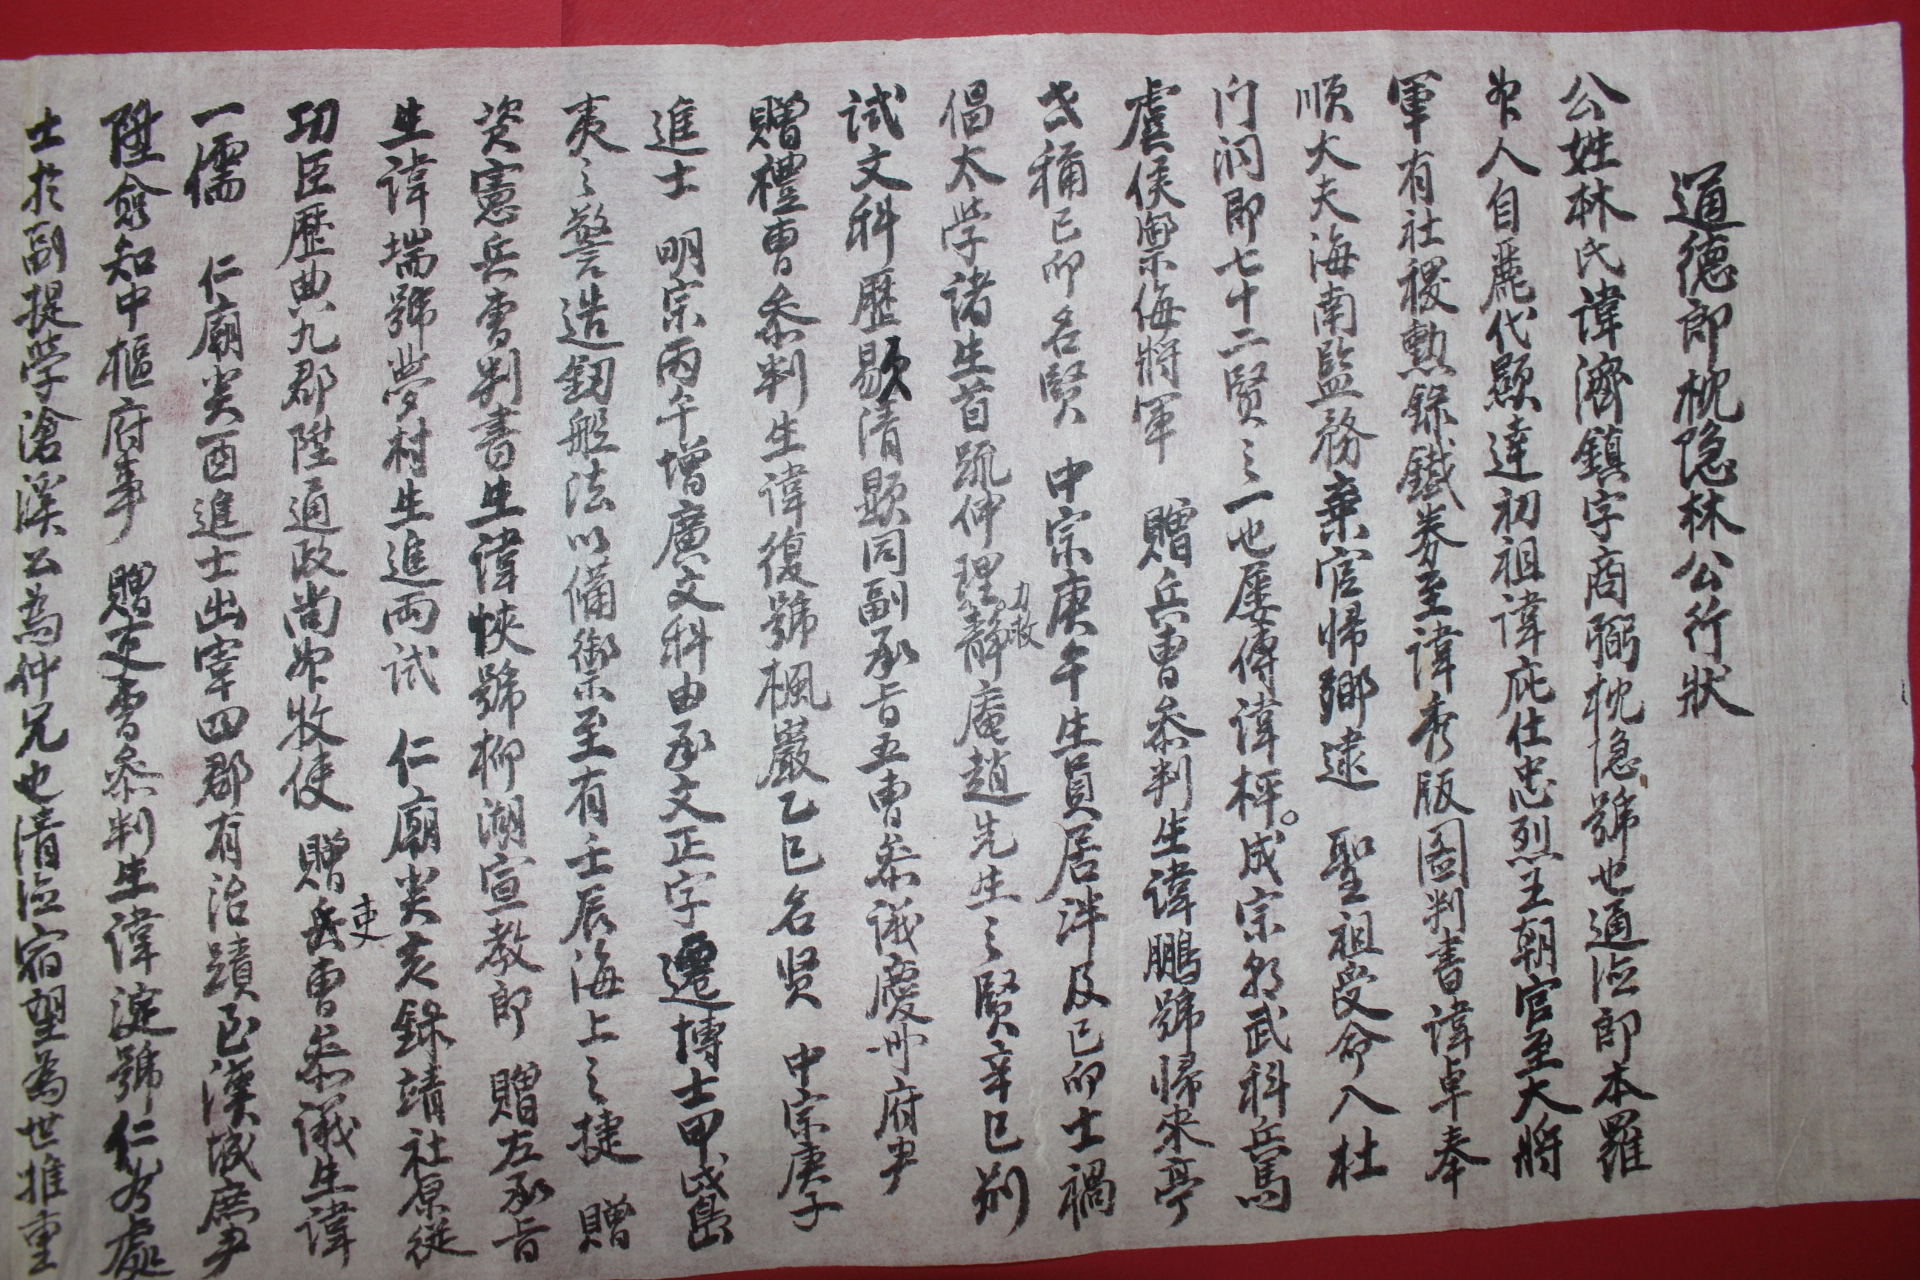 通德郎枕隐林公行狀
公姓林氏諱濟鎮字商弼枕隐號也通德郎本羅
州人自麗代顯達初祖諱庇仕忠烈王朝官至大將
軍有社稷勲録鐵券至諱秀版圖判書諱卓奉
順大夫海南監務棄官帰鄉逮 聖祖受命入杜
门洞即七十二賢之一也屡傳諱枰。成宗朝武科兵馬
虞侯禦侮將軍 贈兵曹叅判生諱鵬號帰來亭
世稱己卯名賢 中宗庚午生員居泮及己卯士禍
倡太学諸生首疏伸理力救靜庵趙先生之賢辛巳别
試文科歷敭清顕同副承旨五曹叅議慶州府尹
贈禮曹叅判生諱復號楓巖乙巳名贤 中宗庚子
進士 明宗丙午增廣文科由承文正字遷博士甲
夷之警造釰船法以備禦至有壬辰海上之捷 贈
資憲兵曹判書生諱悏號柳湖宣教郎 贈左承旨
生諱㙐號夢村生進両试 仁廟癸亥錄靖社原從
功臣歷典九郡陞通政尚州牧使 贈吏曹叅議生諱
一儒 仁廟癸酉進士出宰四郡有治蹟至漢城庶尹
陞僉知中樞府事 贈吏曹叅判生諱浣號仁
士於副提学滄溪公為仲兄也清德宿望為世推重